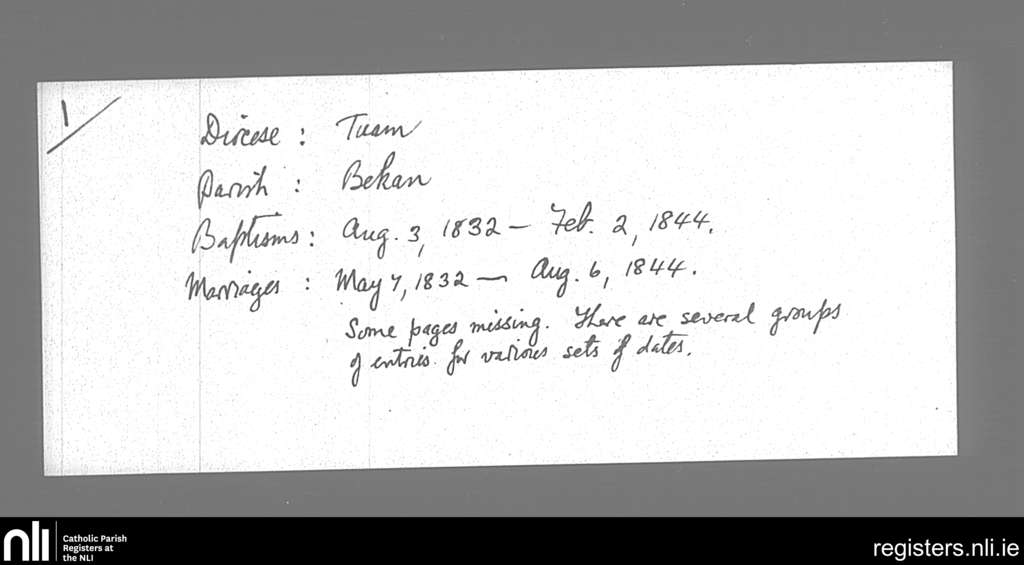 1/
Diocese : Tuam
Parish : Bekan
Baptisms : Aug. 3, 1832 – Feb. 2, 1844.
Marriages : May 7, 1832 – Aug. 6, 1844.
Some pages missing. There are several groups
of entries for various sets of dates.
nli
Catholic Parish
Registers at
the NLI
registers.nli.ie